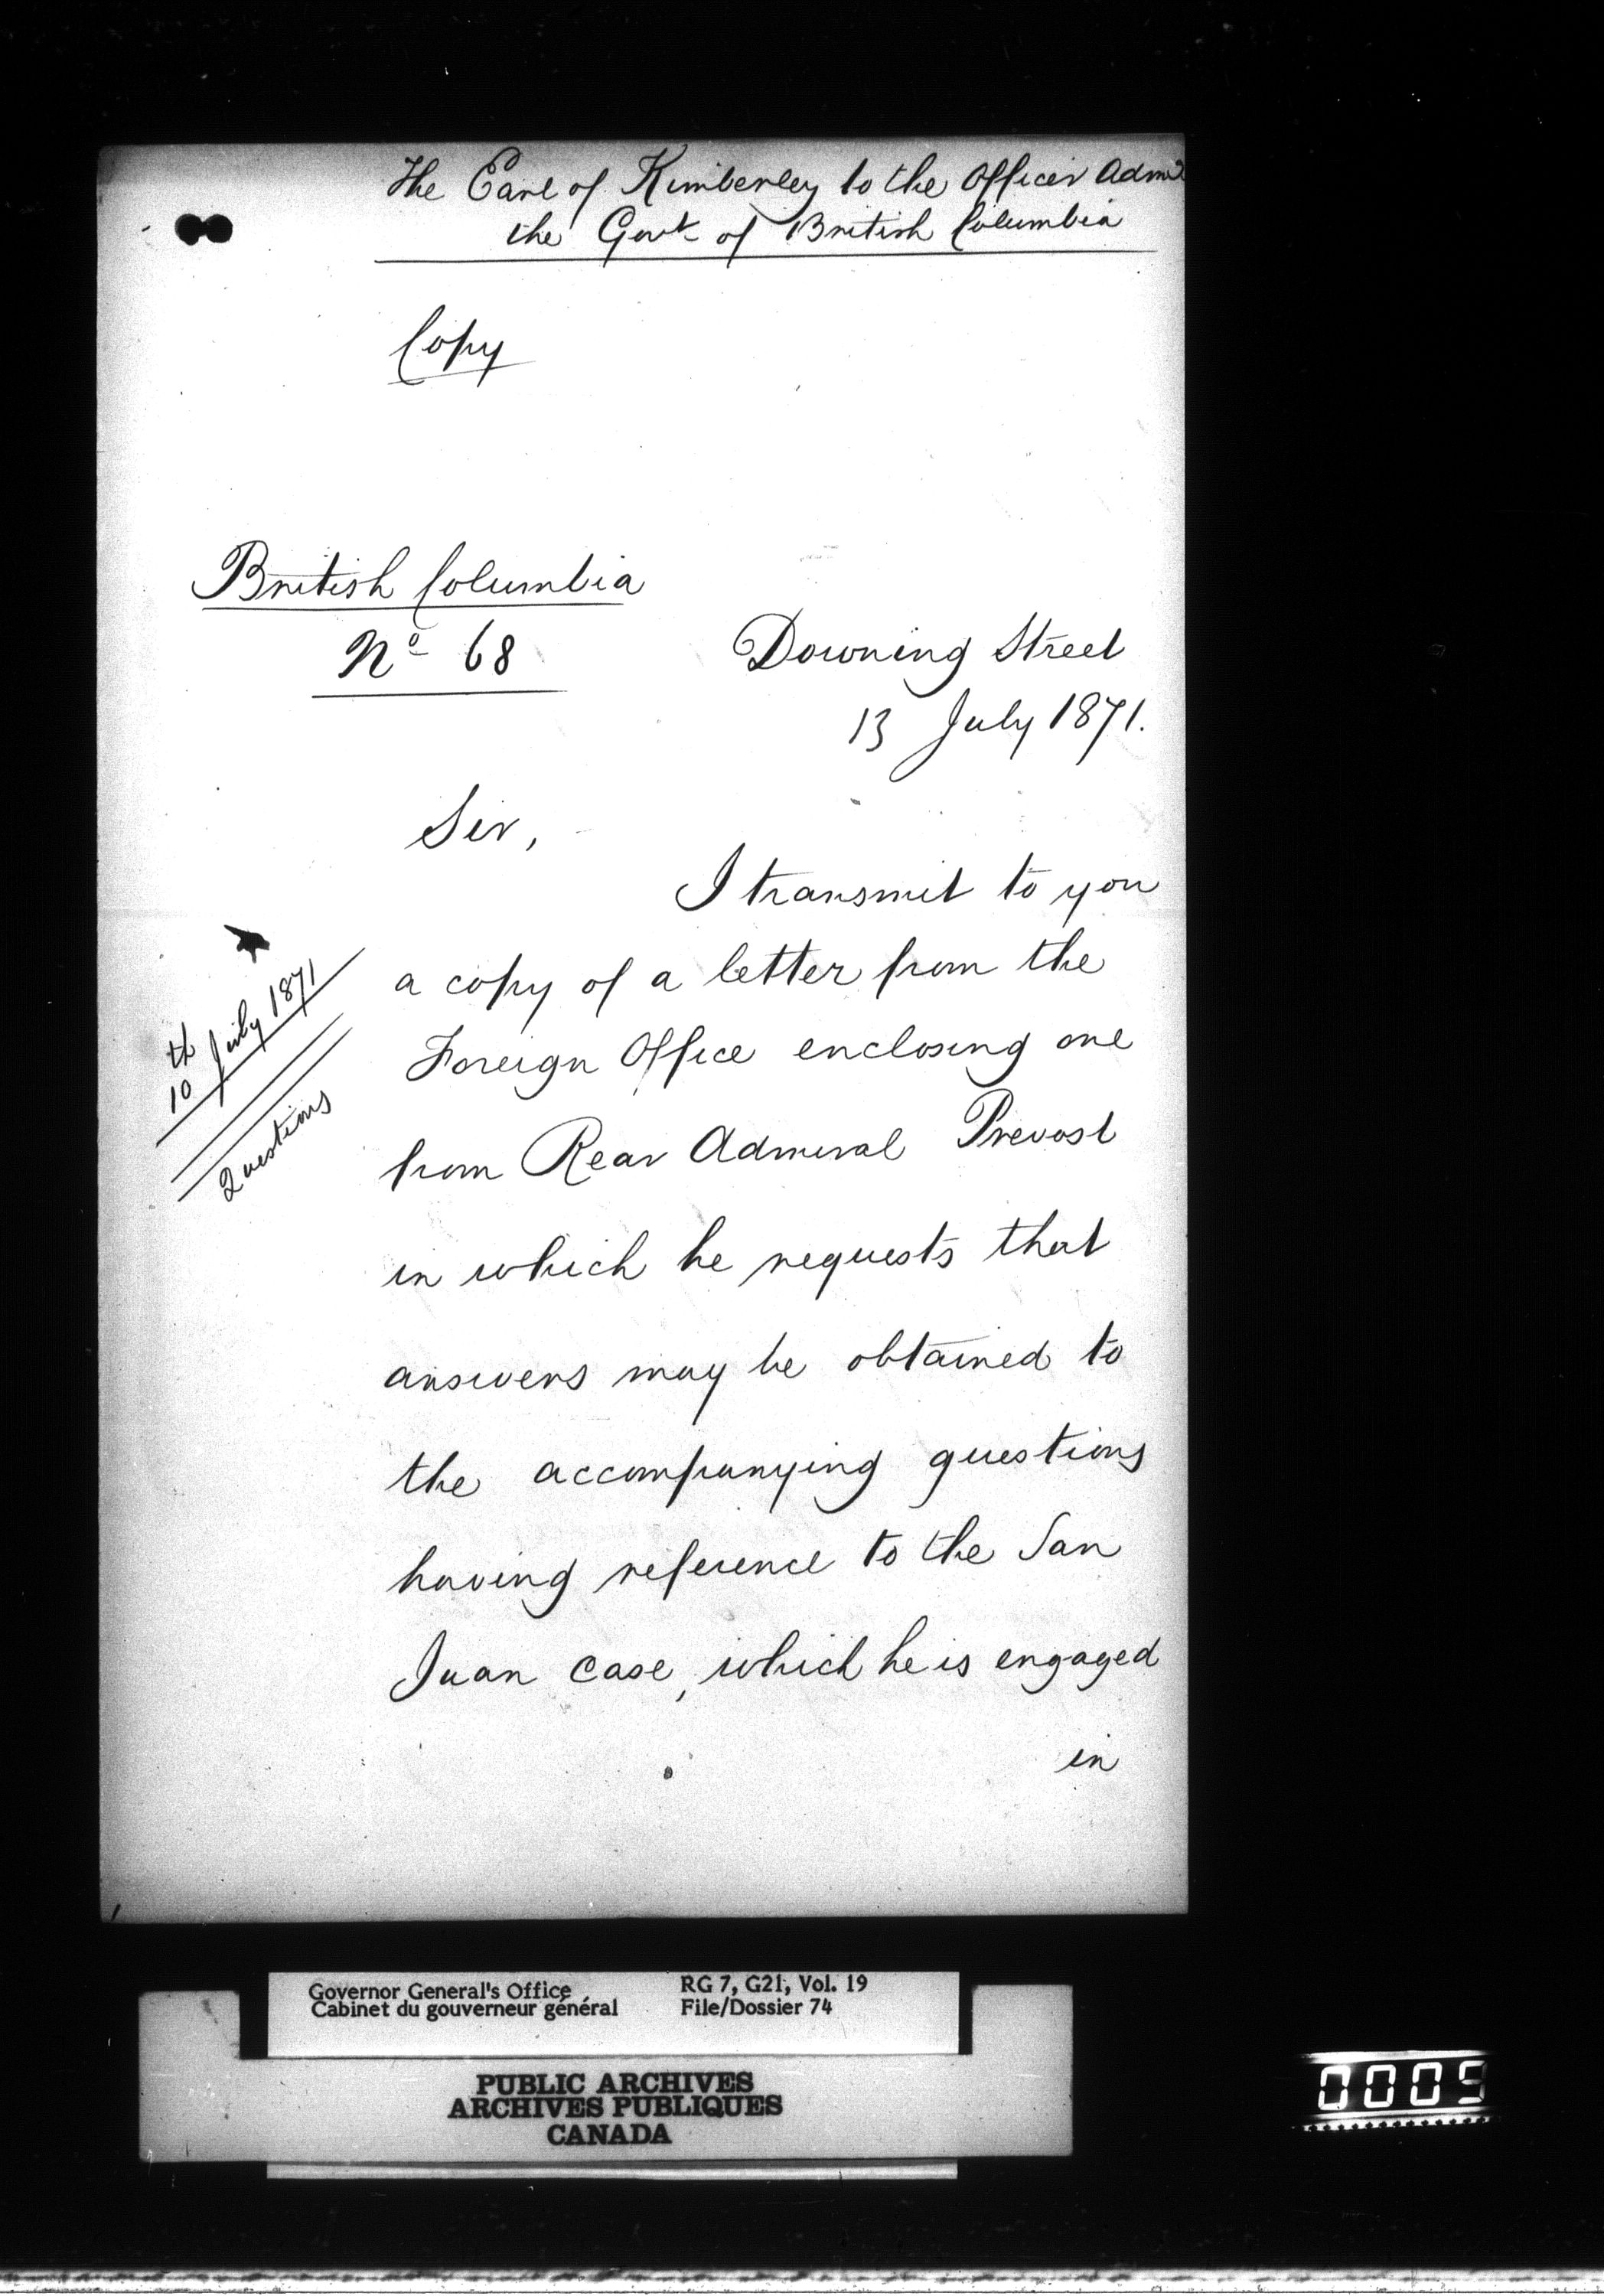 The Earl of Kimberley to the Officer Admg
the Govt of British Columbia
Copy
British Columbia
No 68
Downing Street
13 July 1871.
Sir,
I transmit to you
a copy of a letter from the
Foreign Office enclosing one
from Rear Admiral Prevost
in which he requests that
answers may be obtained to
the accompanying questions
having reference to the San
Juan case, which he is engaged
in
10th July 1871
Questions
Governor General's Office
Cabinet du gouverneur général
RG 7, G21, Vol. 19
File/Dossier 74
PUBLIC ARCHIVES
ARCHIVES PUBLIQUES
CANADA
0005